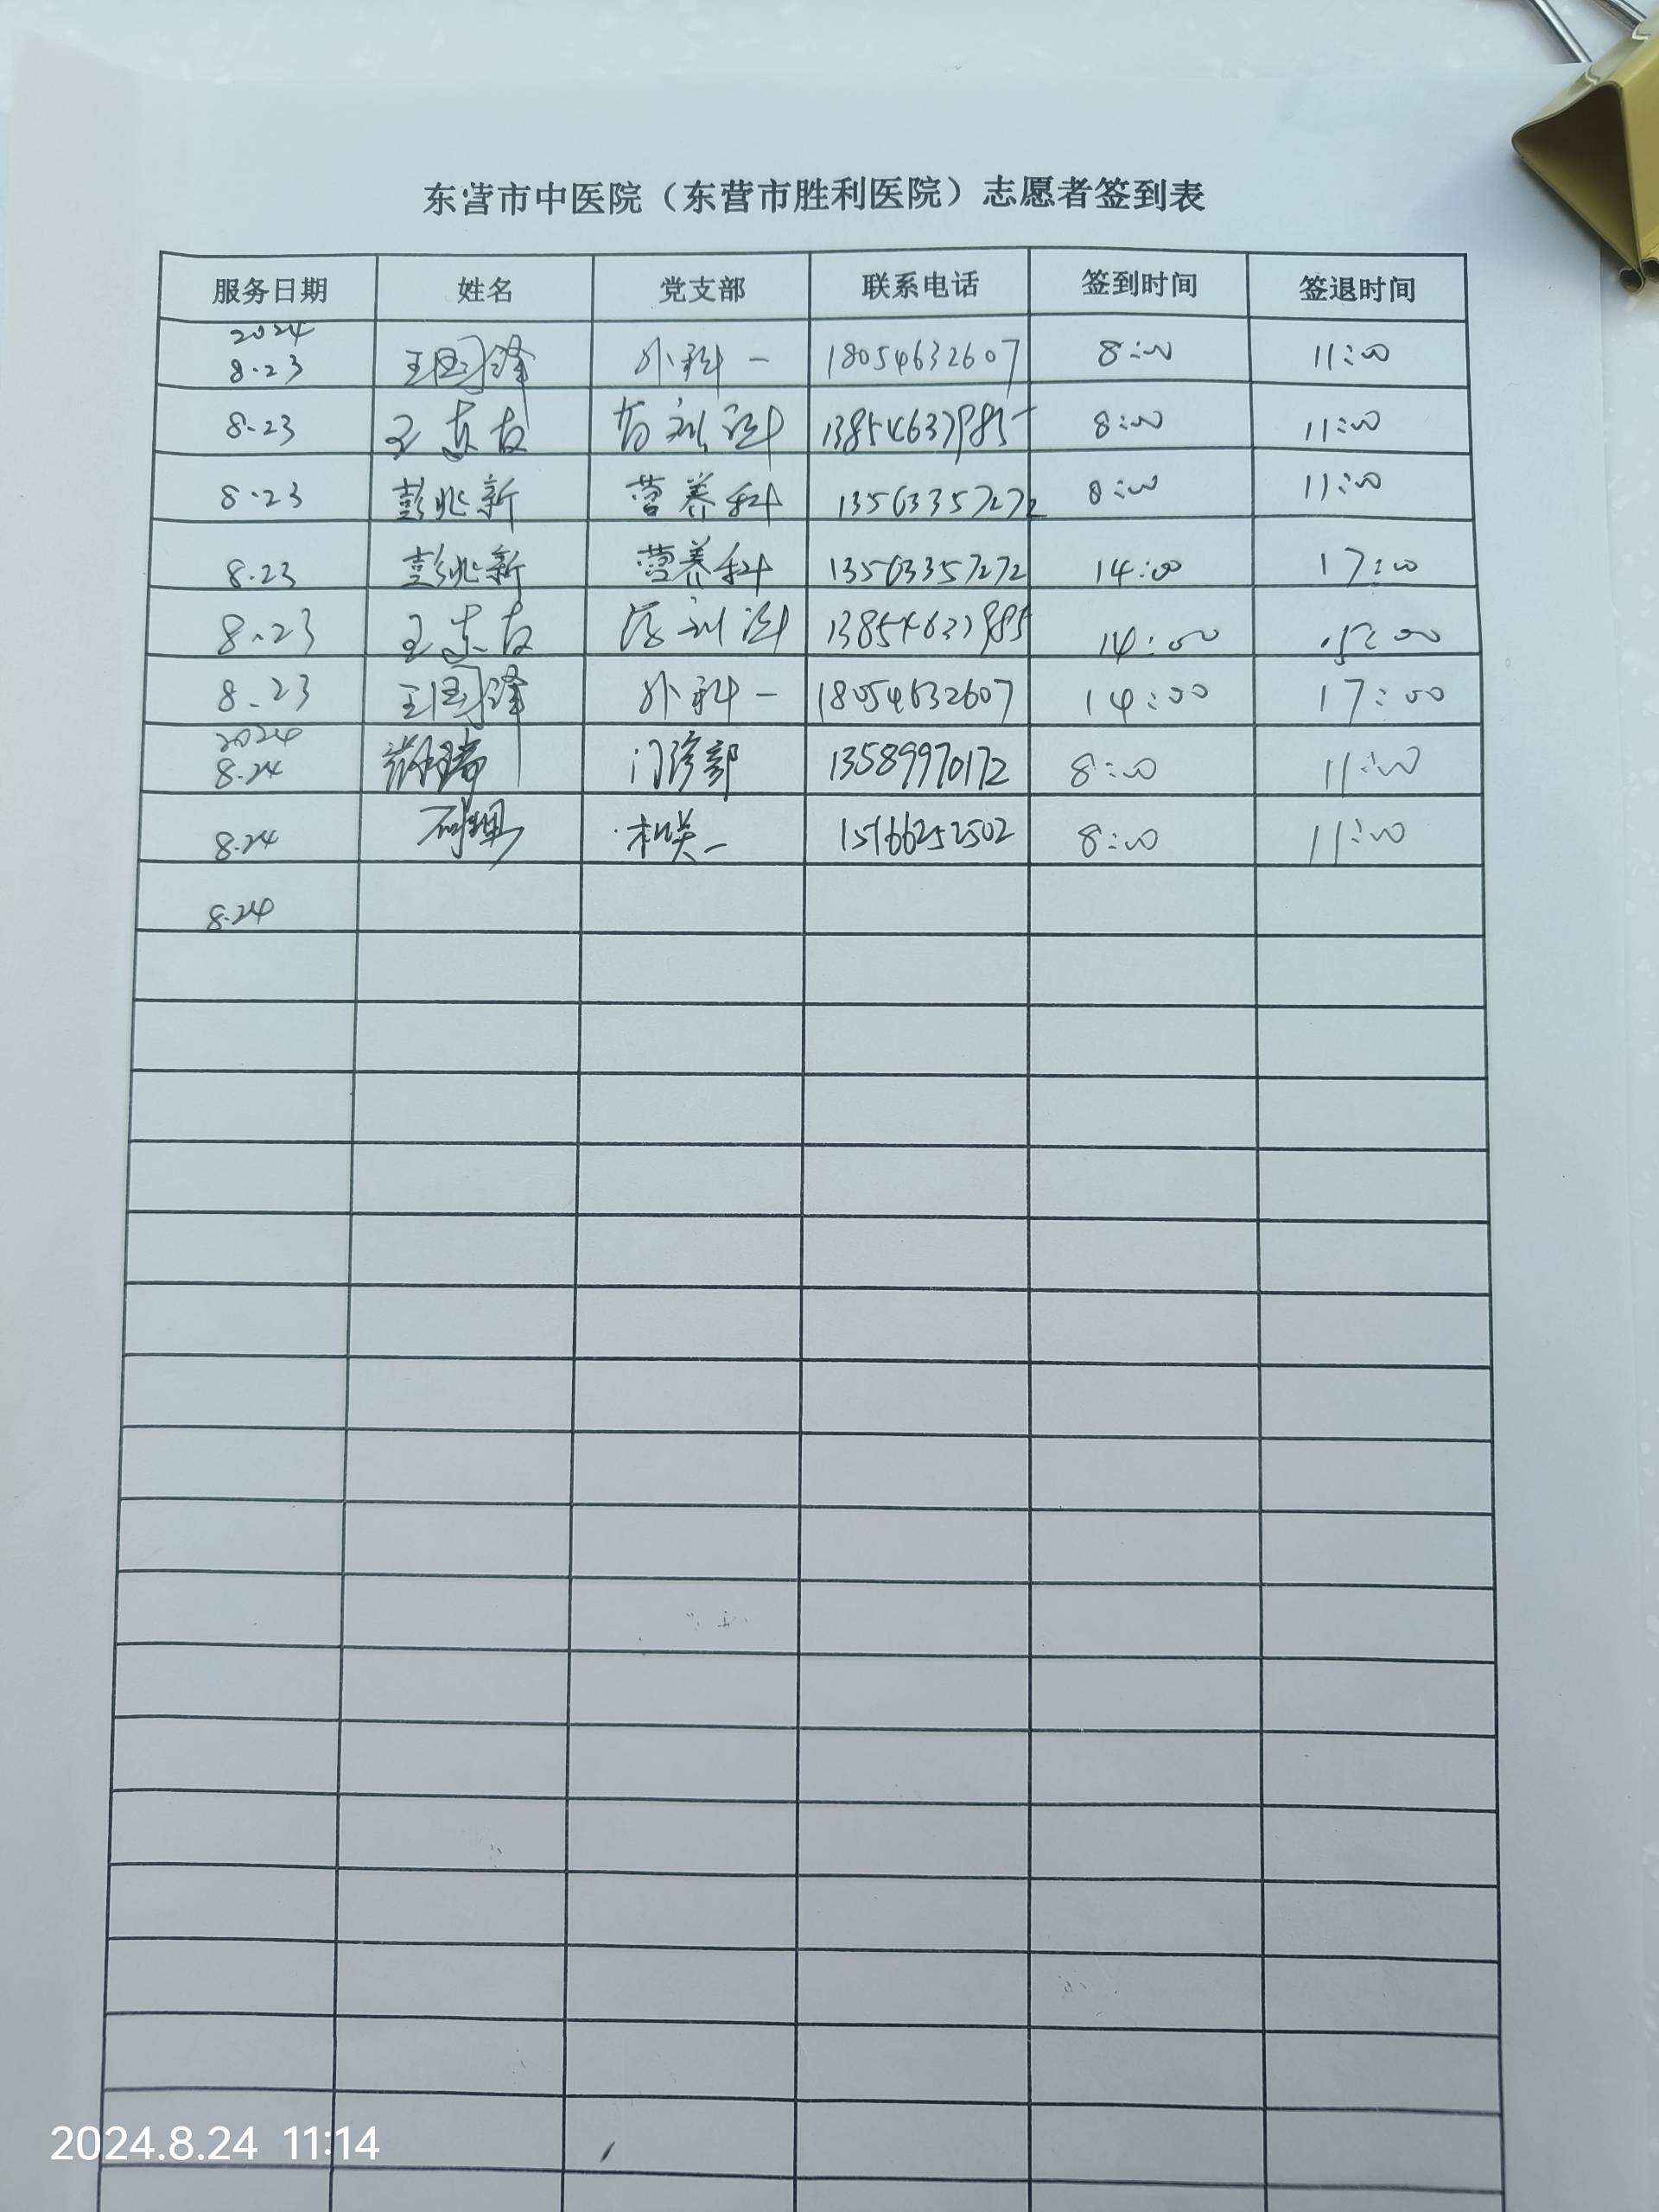 东营市中医院（东营市胜利医院）志愿者签到表
服务日期 姓名 党支部 联系电话 签到时间 签退时间
2024
8.23 王国锋 外科一 18054632607 8:00 11:00
8.23 王东友 13854637985 8:00 11:00
8.23 彭兆新 营养科 13563357272 8:00 11:00
8.23 彭兆新 营养科 13563357272 14:00 17:00
8.23 王东友 13854637985 14:00
8.23 王国锋 外科一 18054632607 14:00 17:00
2024
8.24 门诊部 13589970172 8:00 11:00
8.24 机关一 15166252502 8:00 11:00
8.24
2024.8.24 11:14